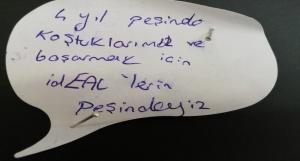 4 yıl peşinde
koştuklarımız ve
başarmak için
idEAL 'lerin
Peşindeyiz